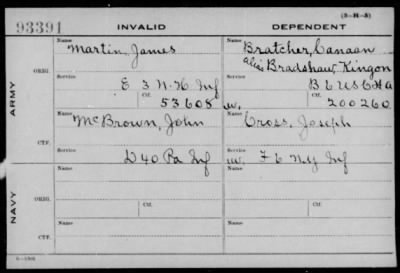 93391 INVALID DEPENDENT (3-H-3)
ARMY
ORIG.
Name Martin, James
Service E 3 N.H. Inf
Ctf. 53608
Name Bratcher, Canaan
alias Bradshaw, Kingon
Service B 6 U S C H A
w. Ctf. 200260
CTF.
Name McBrown, John
Service D 40 Pa Inf
Name Cross, Joseph
w. Service F 6 N.Y. Inf
NAVY
ORIG.
Name
Service
Ctf.
Name
Service
Ctf.
CTF.
Name
Service
Name
Service